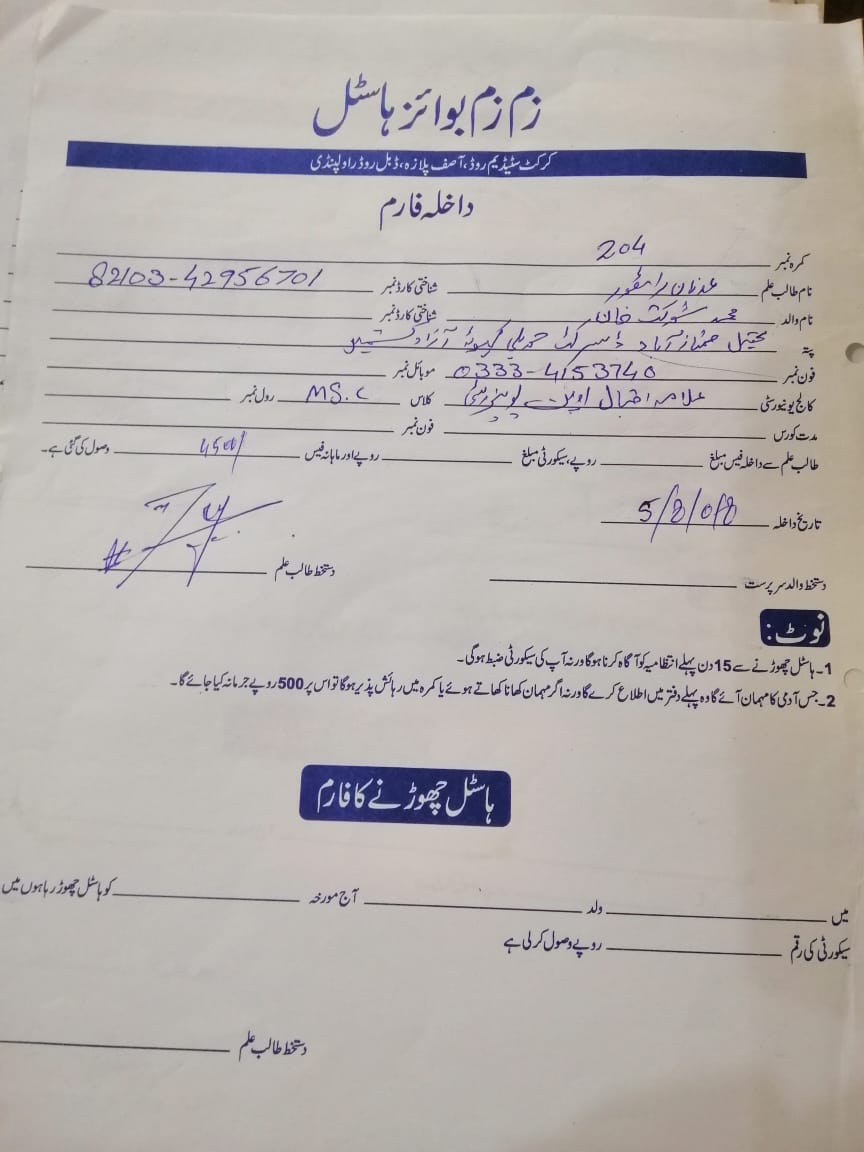 زم زم بوائز ہاسٹل
کرکٹ سٹیڈیم روڈ، آصف پلازہ، ڈبل روڈ راولپنڈی
داخلہ فارم
کمرہ نمبر 204
نام طالب علم عدنان شناختی کارڈ نمبر 82103-42956701
نام والد محمد شوکت خان شناختی کارڈ نمبر
پتہ ممتاز آباد ڈسٹرکٹ حویلی کہوٹہ آزاد کشمیر
فون نمبر 0333-4153740 موبائل نمبر
کالج یونیورسٹی علامہ اقبال اوپن یونیورسٹی کلاس MS.C رول نمبر
مدت کورس فون نمبر
طالب علم سے داخلہ فیس مبلغ روپے، سیکورٹی مبلغ روپے اور ماہانہ فیس 4500/ وصول کی گئی ہے۔
تاریخ داخلہ
دستخط والد سرپرست دستخط طالب علم
نوٹ:
1۔ ہاسٹل چھوڑنے سے 15 دن پہلے انتظامیہ کو آگاہ کرنا ہوگا ورنہ آپ کی سیکورٹی ضبط ہوگی۔
2۔ جس آدمی کا مہمان آئے گا وہ پہلے دفتر میں اطلاع کرے گا ورنہ اگر مہمان کھانا کھاتے ہوئے یا کمرہ میں رہائش پذیر ہوگا تو اس پر 500 روپے جرمانہ کیا جائے گا۔
ہاسٹل چھوڑنے کا فارم
میں ولد آج مورخہ کو ہاسٹل چھوڑ رہا ہوں میں
سیکورٹی کی رقم روپے وصول کر لی ہے
دستخط طالب علم